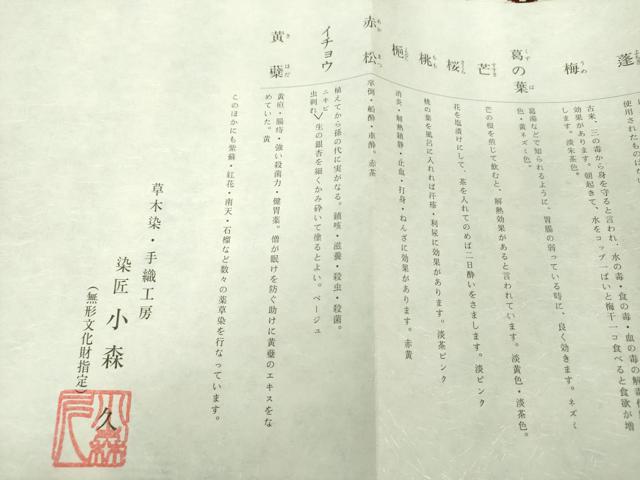 蓬
使用されたものは
梅
うめ
古来、三の毒から身を守ると言われ、水の毒・食の毒・血の毒の解毒
効果があります。朝起きて、水をコップ一ぱいと梅干一コ食べると食欲が増
します。淡朱茶色。
葛の葉
くず は
葛湯などで知られるように、胃腸の弱っている時に、良く効きます。ネズミ
色・黄ネズミ色。
芒
すすき
芒の根を煎じて飲むと、解熱効果があると言われています。淡黄色・淡茶色。
桜
さくら
花を塩漬けにして、茶を入れてのめば二日酔いをさまします。淡ピンク
桃
もも
桃の葉を風呂に入れれば汗疹・利尿に効果があります。淡茶ピンク
梔
消炎・解熱鎮静・止血・打身・ねんざに効果があります。赤黄
赤松
あか まつ
卒倒・船酔・車酔。赤茶
イチョウ
植えてから孫の代に実がなる。鎮咳・滋養・殺虫・殺菌。
ニキビ
虫刺れ 生の銀杏を細くかみ砕いて塗るとよい。ベージュ
黄蘗
き はだ
黄疸・腸痔・強い殺菌力・健胃薬。僧が眠けを防ぐ助けに黄蘗のエキスをな
めていた。黄
このほかにも紫蘇・紅花・南天・石榴など数々の薬草染を行なっています。
草木染・手織工房
染匠 小森 久
(無形文化財指定)